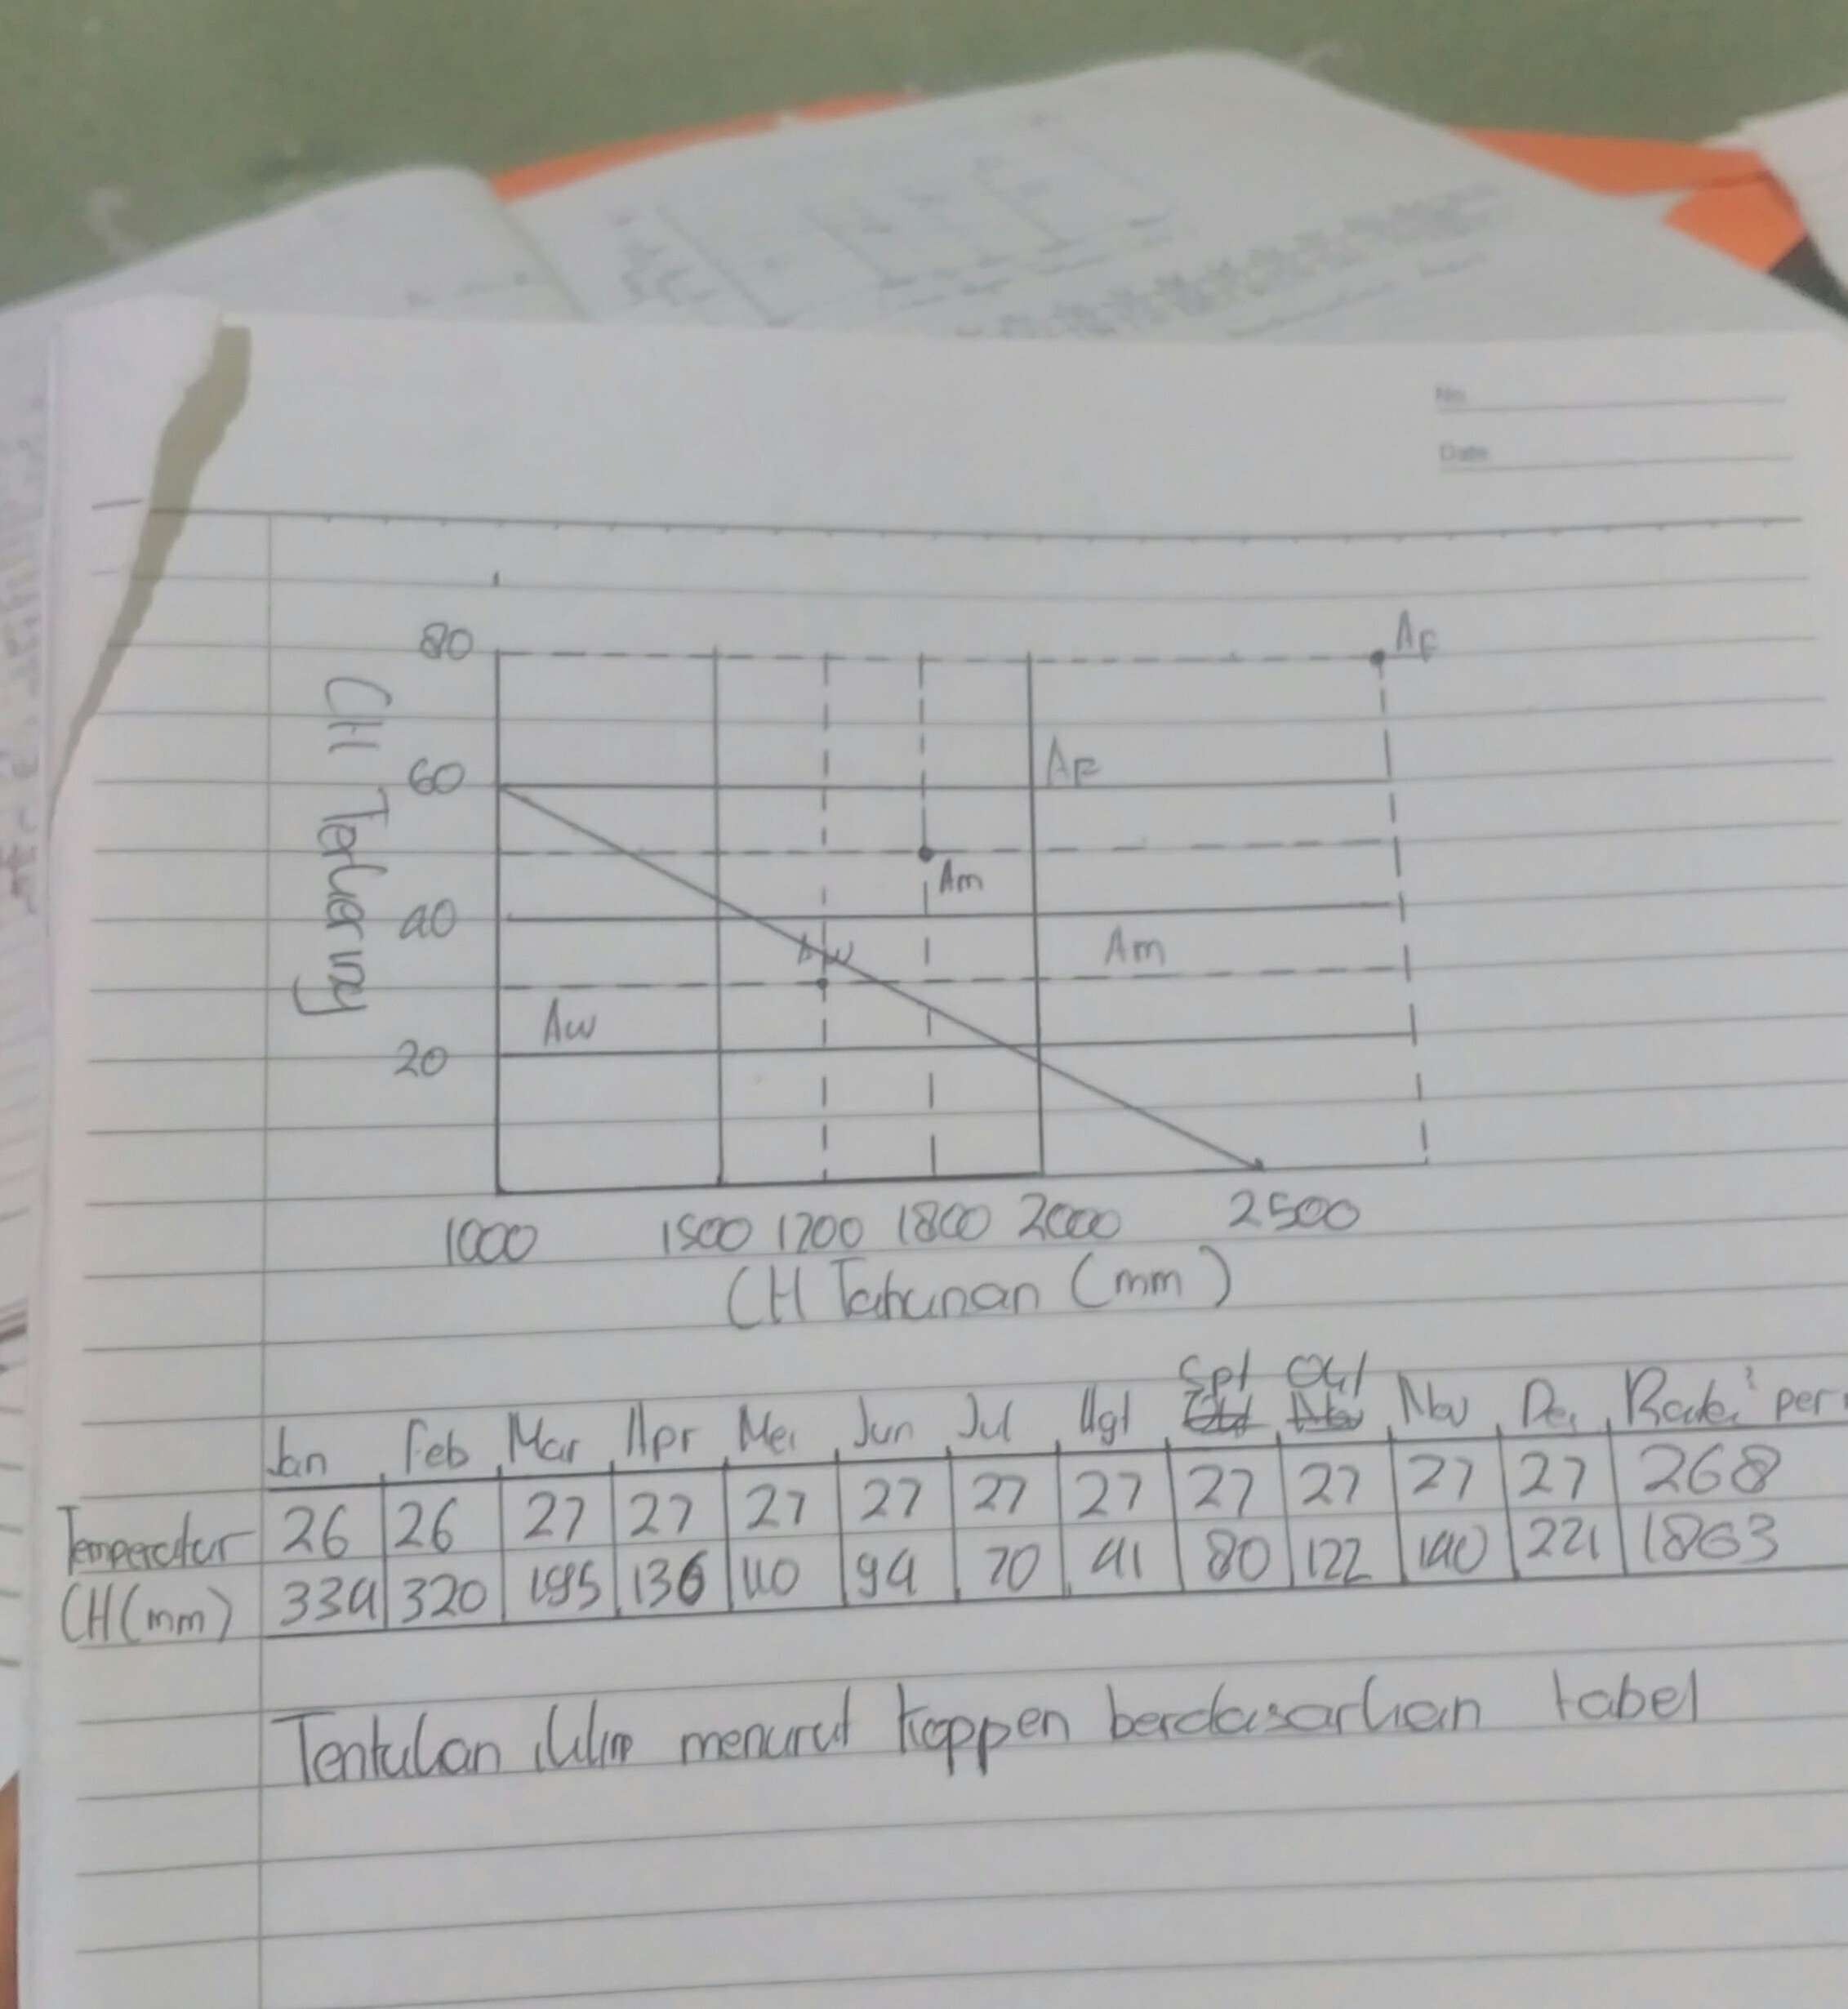 No
Date
80
60
40
20
CH Terkering
AF
AF
Am
Am
Aw
Aw
1000 1500 1700 1800 2000 2500
CH Tahunan (mm)
Spt Okt
Jan Feb Mar Apr Mei Jun Jul Agt Okt Nov Nov Des Rata² per
Temperatur 26 26 27 27 27 27 27 27 27 27 27 27 268
CH (mm) 334 320 195 136 110 94 70 41 80 122 140 221 1863
Tentukan iklim menurut Koppen berdasarkan tabel